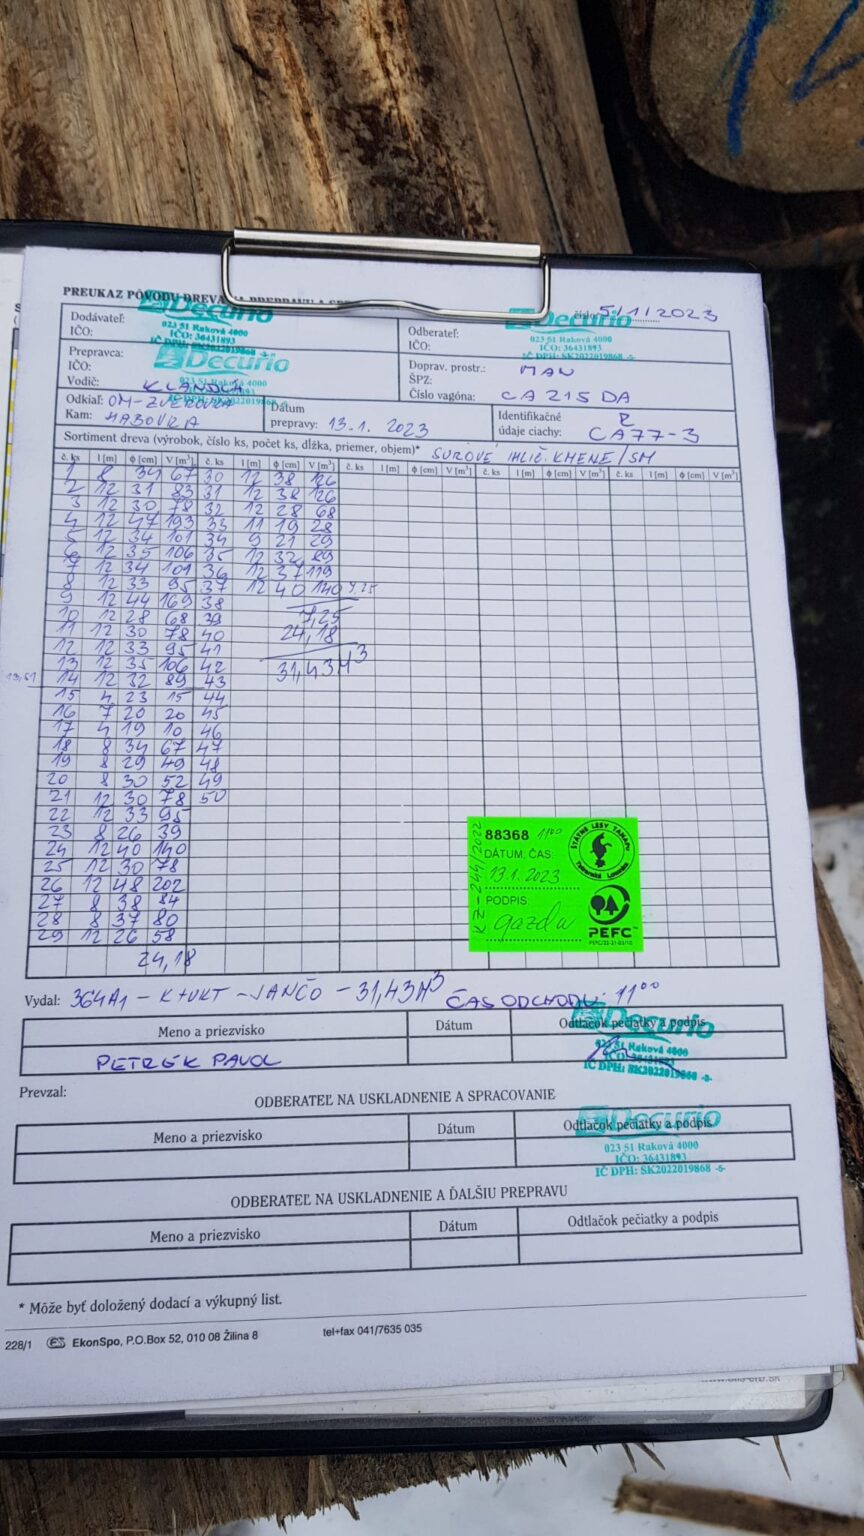 PREUKAZ PÔVODU DREVA NA PREPRAVU A
číslo 5/1/2023
Decurio
023 51 Raková 4000
IČO: 36431893
IČ DPH: SK2022019868 -5-
Dodávateľ:
IČO:
Decurio
023 51 Raková 4000
IČO: 36431893
IČ DPH: SK2022019868 -5-
Odberateľ:
IČO:
Decurio
023 51 Raková 4000
Prepravca:
IČO:
Vodič:
Doprav. prostr.: MAN
ŠPZ:
Číslo vagóna: CA 215 DA
Odkiaľ: OM-ZVEROVKA
Kam: HABOVKA
Dátum
prepravy: 13.1. 2023
Identifikačné R
údaje ciachy: CA77-3
Sortiment dreva (výrobok, číslo ks, počet ks, dĺžka, priemer, objem)* SUROVÉ IHLIČ. KMENE/SM
č. ks l [m] ϕ [cm] V [m³] č. ks l [m] ϕ [cm] V [m³] č. ks l [m] ϕ [cm] V [m³] č. ks l [m] ϕ [cm] V [m³] č. ks l [m] ϕ [cm] V [m³]
1 8 34 67 30 12 38 126
2 12 31 83 31 12 38 126
3 12 30 78 32 12 28 68
4 12 47 193 33 11 19 28
5 12 34 101 34 9 21 29
6 12 35 106 35 12 32 89
7 12 34 101 36 12 37 119
8 12 33 95 37 12 40 140 7,25
9 12 44 169 38
10 12 28 68 39 7,25
11 12 30 78 40 24,18
12 12 33 95 41
13 12 35 106 42 31,43 M³
14 12 32 89 43
15 4 23 15 44
16 7 20 20 45
17 4 19 10 46
18 8 34 67 47
19 8 29 49 48
20 8 30 52 49
21 12 30 78 50
22 12 33 95
23 8 26 39
24 12 40 140
25 12 30 78
26 12 48 202
27 8 38 84
28 8 37 80
29 12 26 58
24,18
KZ-244/2022
88368 11⁰⁰
DÁTUM, ČAS:
13.1.2023
PODPIS:
gazda
ŠTÁTNE LESY TANAPu
Tatranská Lomnica
PEFC™
Vydal: 364A1 - K+UKT - JANČO - 31,43M³ ČAS ODCHODU: 11⁰⁰
Meno a priezvisko Dátum Odtlačok pečiatky a podpis
PETREK PAVOL
Decurio
023 51 Raková 4000
IČ DPH: SK2022019868 -5-
Prevzal:
ODBERATEĽ NA USKLADNENIE A SPRACOVANIE
Meno a priezvisko Dátum Odtlačok pečiatky a podpis
Decurio
023 51 Raková 4000
IČO: 36431893
IČ DPH: SK2022019868 -5-
ODBERATEĽ NA USKLADNENIE A ĎALŠIU PREPRAVU
Meno a priezvisko Dátum Odtlačok pečiatky a podpis
* Môže byť doložený dodací a výkupný list.
228/1 EkonSpo, P.O.Box 52, 010 08 Žilina 8 tel+fax 041/7635 035